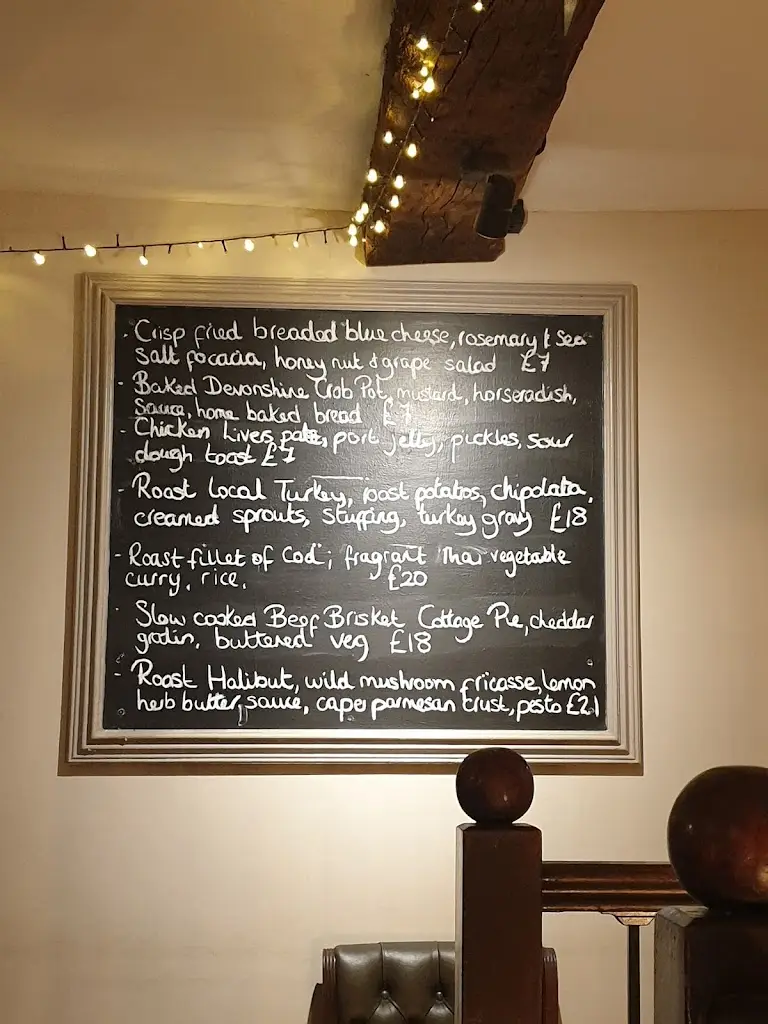 - Crisp fried breaded blue cheese, rosemary & sea
salt focacia, honey nut & grape salad £7
- Baked Devonshire Crab Pot, mustard, horseradish,
Sauce, home baked bread £7
- Chicken Livers pate, port jelly, pickles, sour
dough toast £7
- Roast local Turkey, roast potatos, chipolata,
creamed sprouts, stuffing, turkey gravy £18
- Roast fillet of Cod, fragrant Thai vegetable
curry, rice, £20
- Slow cooked Beef Brisket Cottage Pie, cheddar
gratin, buttered veg £18
- Roast Halibut, wild mushroom fricasse, lemon
herb butter, sauce, caper parmesan crust, pesto £21